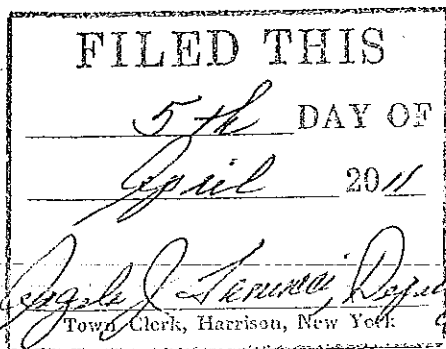 FILED THIS
5th DAY OF
April 2011
J
Town Clerk, Harrison, New York